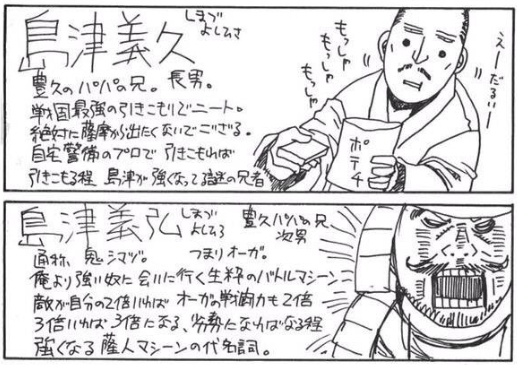 島津義久
しまづ
よしひさ
豊久のパパの兄。長男。
戦国最強の引きこもりでニート。
絶対に薩摩から出たくないでござる。
自宅警備のプロで引きこもれば
引きこもる程 島津が強くなって謎の兄者
もっしゃ
もっしゃ
もっしゃ
えーだるいー
ポテチ
島津義弘
しまづ
よしひろ
豊久パパの兄
次男
通称、鬼シマヅ。つまりオーガ。
俺より強い奴に会いに行く生粋のバトルマシーン
敵が自分の2倍いればオーガの戦闘力も2倍
3倍いれば3倍になる、劣勢になればなる程
強くなる薩人マシーンの代名詞。